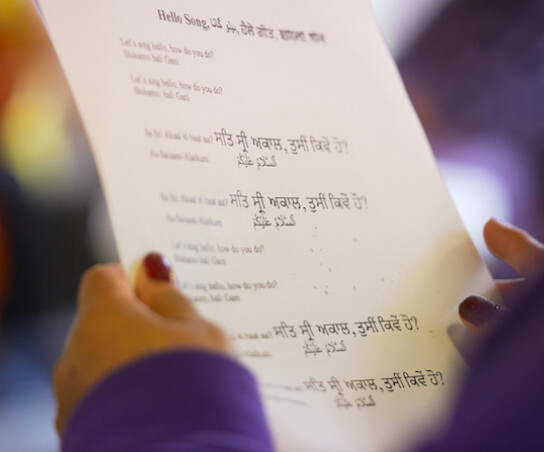 Hello Song, ਹੈਲੋ ਗੀਤ,
Let's sing hello, how do you do?
Shikamo, hali Gani
Let's sing hello, how do you do?
Shikamo, hali Gani
Sa Sri Akaal ਸਤਿ ਸ੍ਰੀ ਅਕਾਲ, ਤੁਸੀਂ ਕਿਵੇਂ ਹੋ?
As-Salaam-Alaikum. السلام علیکم
Sa Sri Akaal ਸਤਿ ਸ੍ਰੀ ਅਕਾਲ, ਤੁਸੀਂ ਕਿਵੇਂ ਹੋ?
As-Salaam-Alaikum. السلام علیکم
Let's sing hello, how do you do?
Shikamo, hali Gani
sing hello, how do you do?
hali Gani
ਸਤਿ ਸ੍ਰੀ ਅਕਾਲ, ਤੁਸੀਂ ਕਿਵੇਂ ਹੋ?
Alaikum. السلام علیکم
ਸਤਿ ਸ੍ਰੀ ਅਕਾਲ, ਤੁਸੀਂ ਕਿਵੇਂ ਹੋ?
السلام علیکم